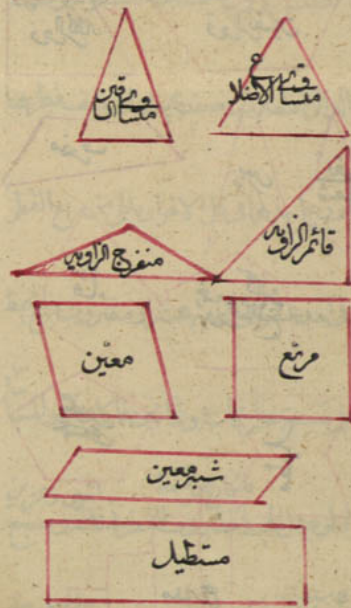 متساوي الأضلاع
متساوي الساقين
قائم الزاويه
منفرج الزاويه
مربع
معين
شبه معين
مستطيل